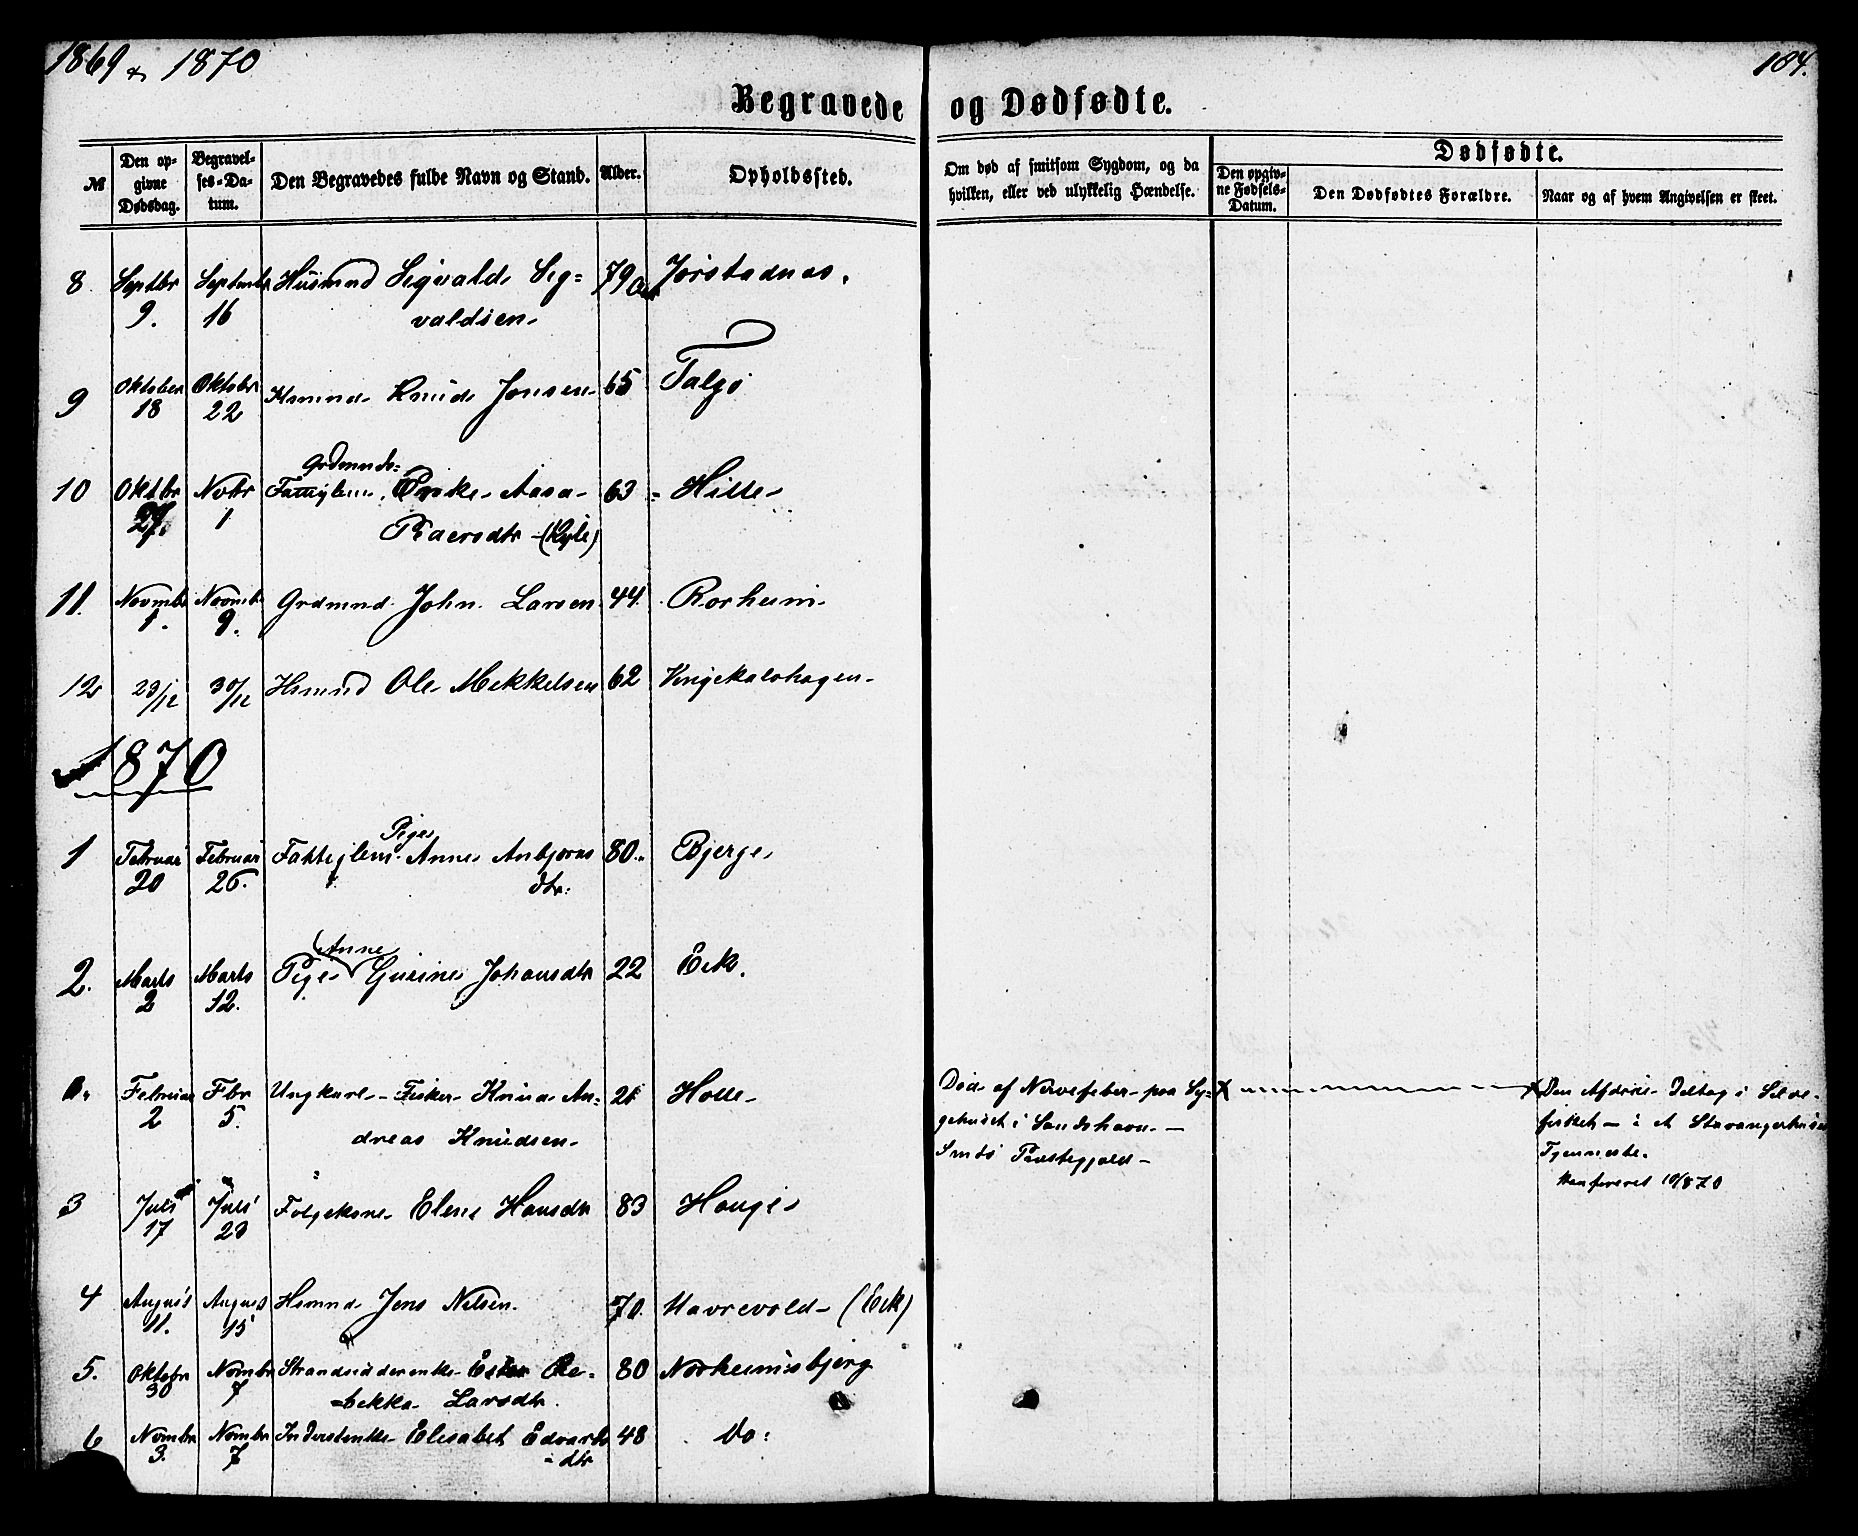 1869 & 1870
184.
Begravede og Dødfødte.
№
Den opgivne Dødsdag.
Begravelses-Datum.
Den Begravedes fulde Navn og Stand.
Alder.
Opholdssted.
Om død af smitsom Sygdom, og da hvilken, eller ved ulykkelig Hændelse.
Dødfødte.
Den opgivne Fødsels-Datum.
Den Dødfødtes Forældre.
Naar og af hvem Angivelsen er skeet.
8 Septbr 9. Septembr 16 Husmnd Sigvald Sig=
valdsen 79 Aar Jorstadnæs.
9 Oktober 18 Oktobr 22 Hsmnd Knud Jonsen 65 Talgø
Grdmnds=
10 Oktbr 27. Novbr 1 Fattiglem. Enke Aasa 63 Hille
Raersdtr (Kyle)
11. Novmbr 1. Novmbr 9. Grdmnd John Larsen 44. Rorheim
12 23/12 30/12 Hsmnd Ole Mikkelsen 62
1870
Pige
1 Februar 20 Februar 26. Fattiglem. Anne Anbjørns 80. Bjerge
dtr.
Anne
2. Marts 2 Marts 12. Pige Gurine Johansdtr 22 Eik.
Februar 2 Fbr 5. Ungkarl - Fisker Knud An= 21 Holle
dreas Knudsen
Død af Nervefeber paa Sy=
gehuset i Sandshavn -
Prestegjeld
Den Afdøde Deltog i Silde-
fisket - i et Stavangerhuses
Tjenneste.
10/8 70
3 Juli 17 Juli 23 Følgekone Elene Hansdtr 83 Hauge
4 August 11. August 15 Hsmnd Jens Nilsen. 70. Havrevold (Eik)
5. Oktobr 30 Novmbr 7 Strandsidderenke Ester Re- 80 Norheimsbjerg
bekka Larsdtr.
6 Novmbr 3. Novmbr 7 Inderstenke Elisabet Edvards 48 Do:
dtr